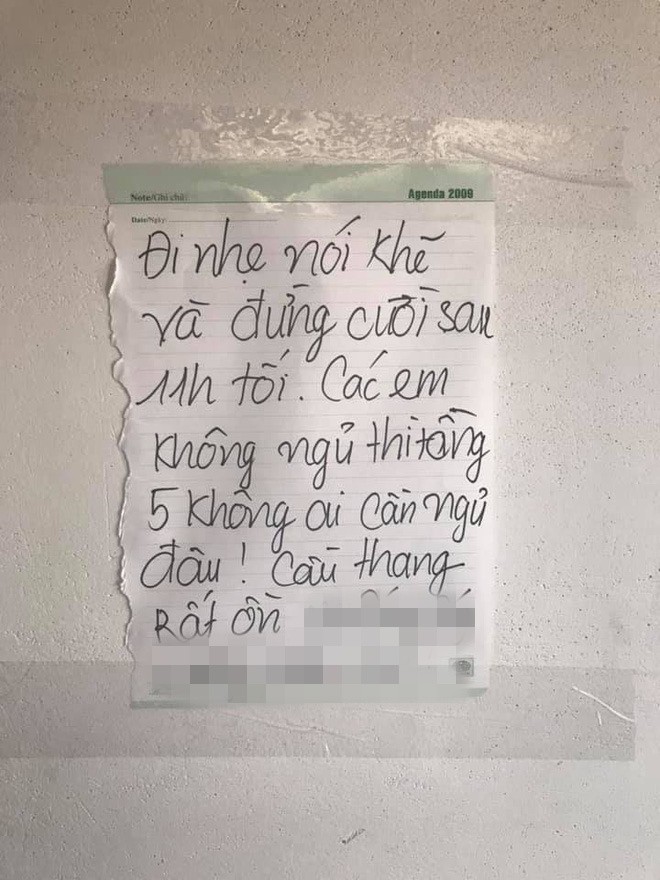 Note/Ghi chú:
Agenda 2009
Date/Ngày:
Đi nhẹ nói khẽ
và đừng cười sau
11h tối. Các em
không ngủ thì tầng
5 không ai cần ngủ
đâu! Cầu thang
Rất ồn